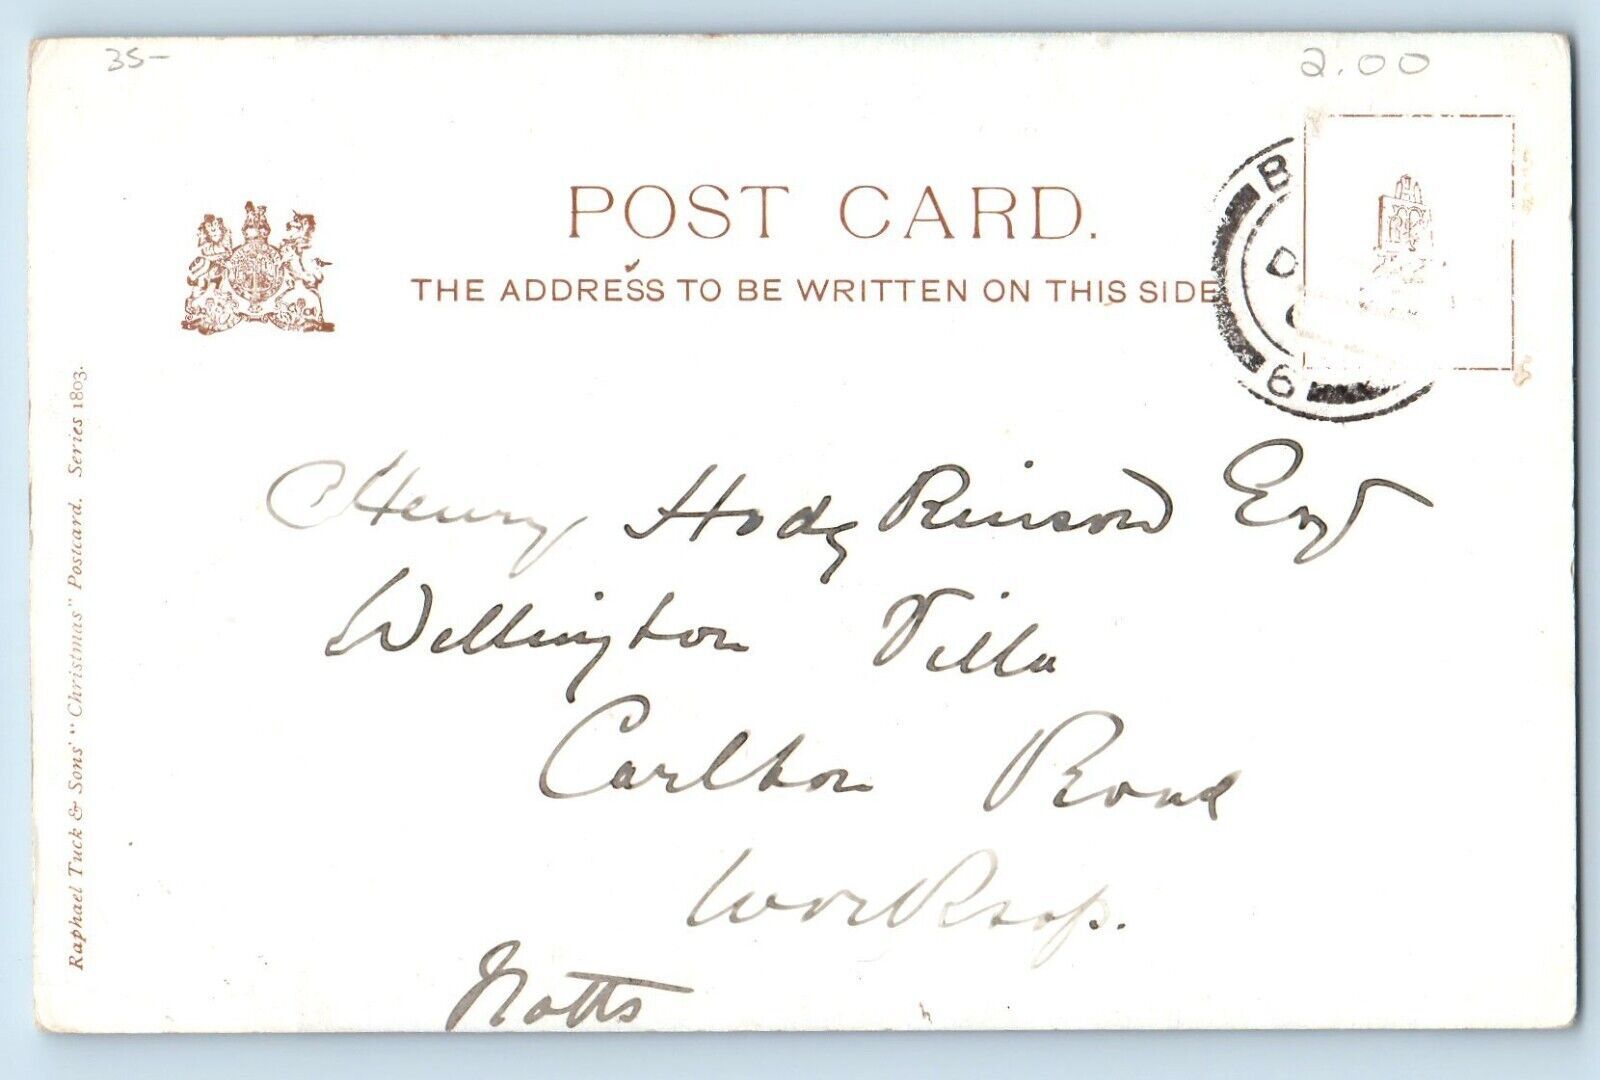 35-
2.00
POST CARD.
THE ADDRESS TO BE WRITTEN ON THIS SIDE
B
D
6
Henry Hodgkinson Esq
Wellington Villa
Carlton Road
Worksop.
Notts
Raphael Tuck & Sons' "Christmas" Postcard. Series 1803.